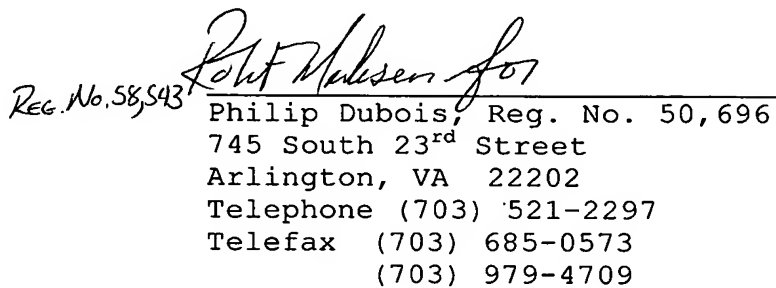 Robt Madsen for
REG. No. 58,543
Philip Dubois, Reg. No. 50,696
745 South 23rd Street
Arlington, VA 22202
Telephone (703) 521-2297
Telefax (703) 685-0573
(703) 979-4709